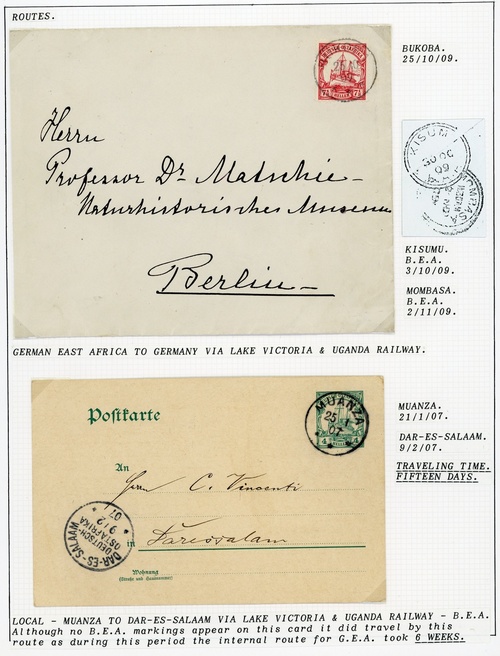 ROUTES.
BUKOBA.
25/10/09.
7½ HELLER 7½
Herrn
Professor Dr Matschie
Naturhistorisches Museum
Berlin
KISUMU
30 OC
09
MOMBASA
KISUMU.
B.E.A.
3/10/09.
MOMBASA.
B.E.A.
2/11/09.
GERMAN EAST AFRICA TO GERMANY VIA LAKE VICTORIA & UGANDA RAILWAY.
Postkarte
MUANZA
25 1
07
4 4
An
Herrn C. Vincenti
in Daressalam
Wohnung
(Straße und Hausnummer)
DAR-ES-SALAAM
DEUTSCH-
OSTAFRIKA
9/2
07
MUANZA.
21/1/07.
DAR-ES-SALAAM.
9/2/07.
TRAVELING TIME.
FIFTEEN DAYS.
LOCAL - MUANZA TO DAR-ES-SALAAM VIA LAKE VICTORIA & UGANDA RAILWAY - B.E.A.
Although no B.E.A. markings appear on this card it did travel by this
route as during this period the internal route for G.E.A. took 6 WEEKS.